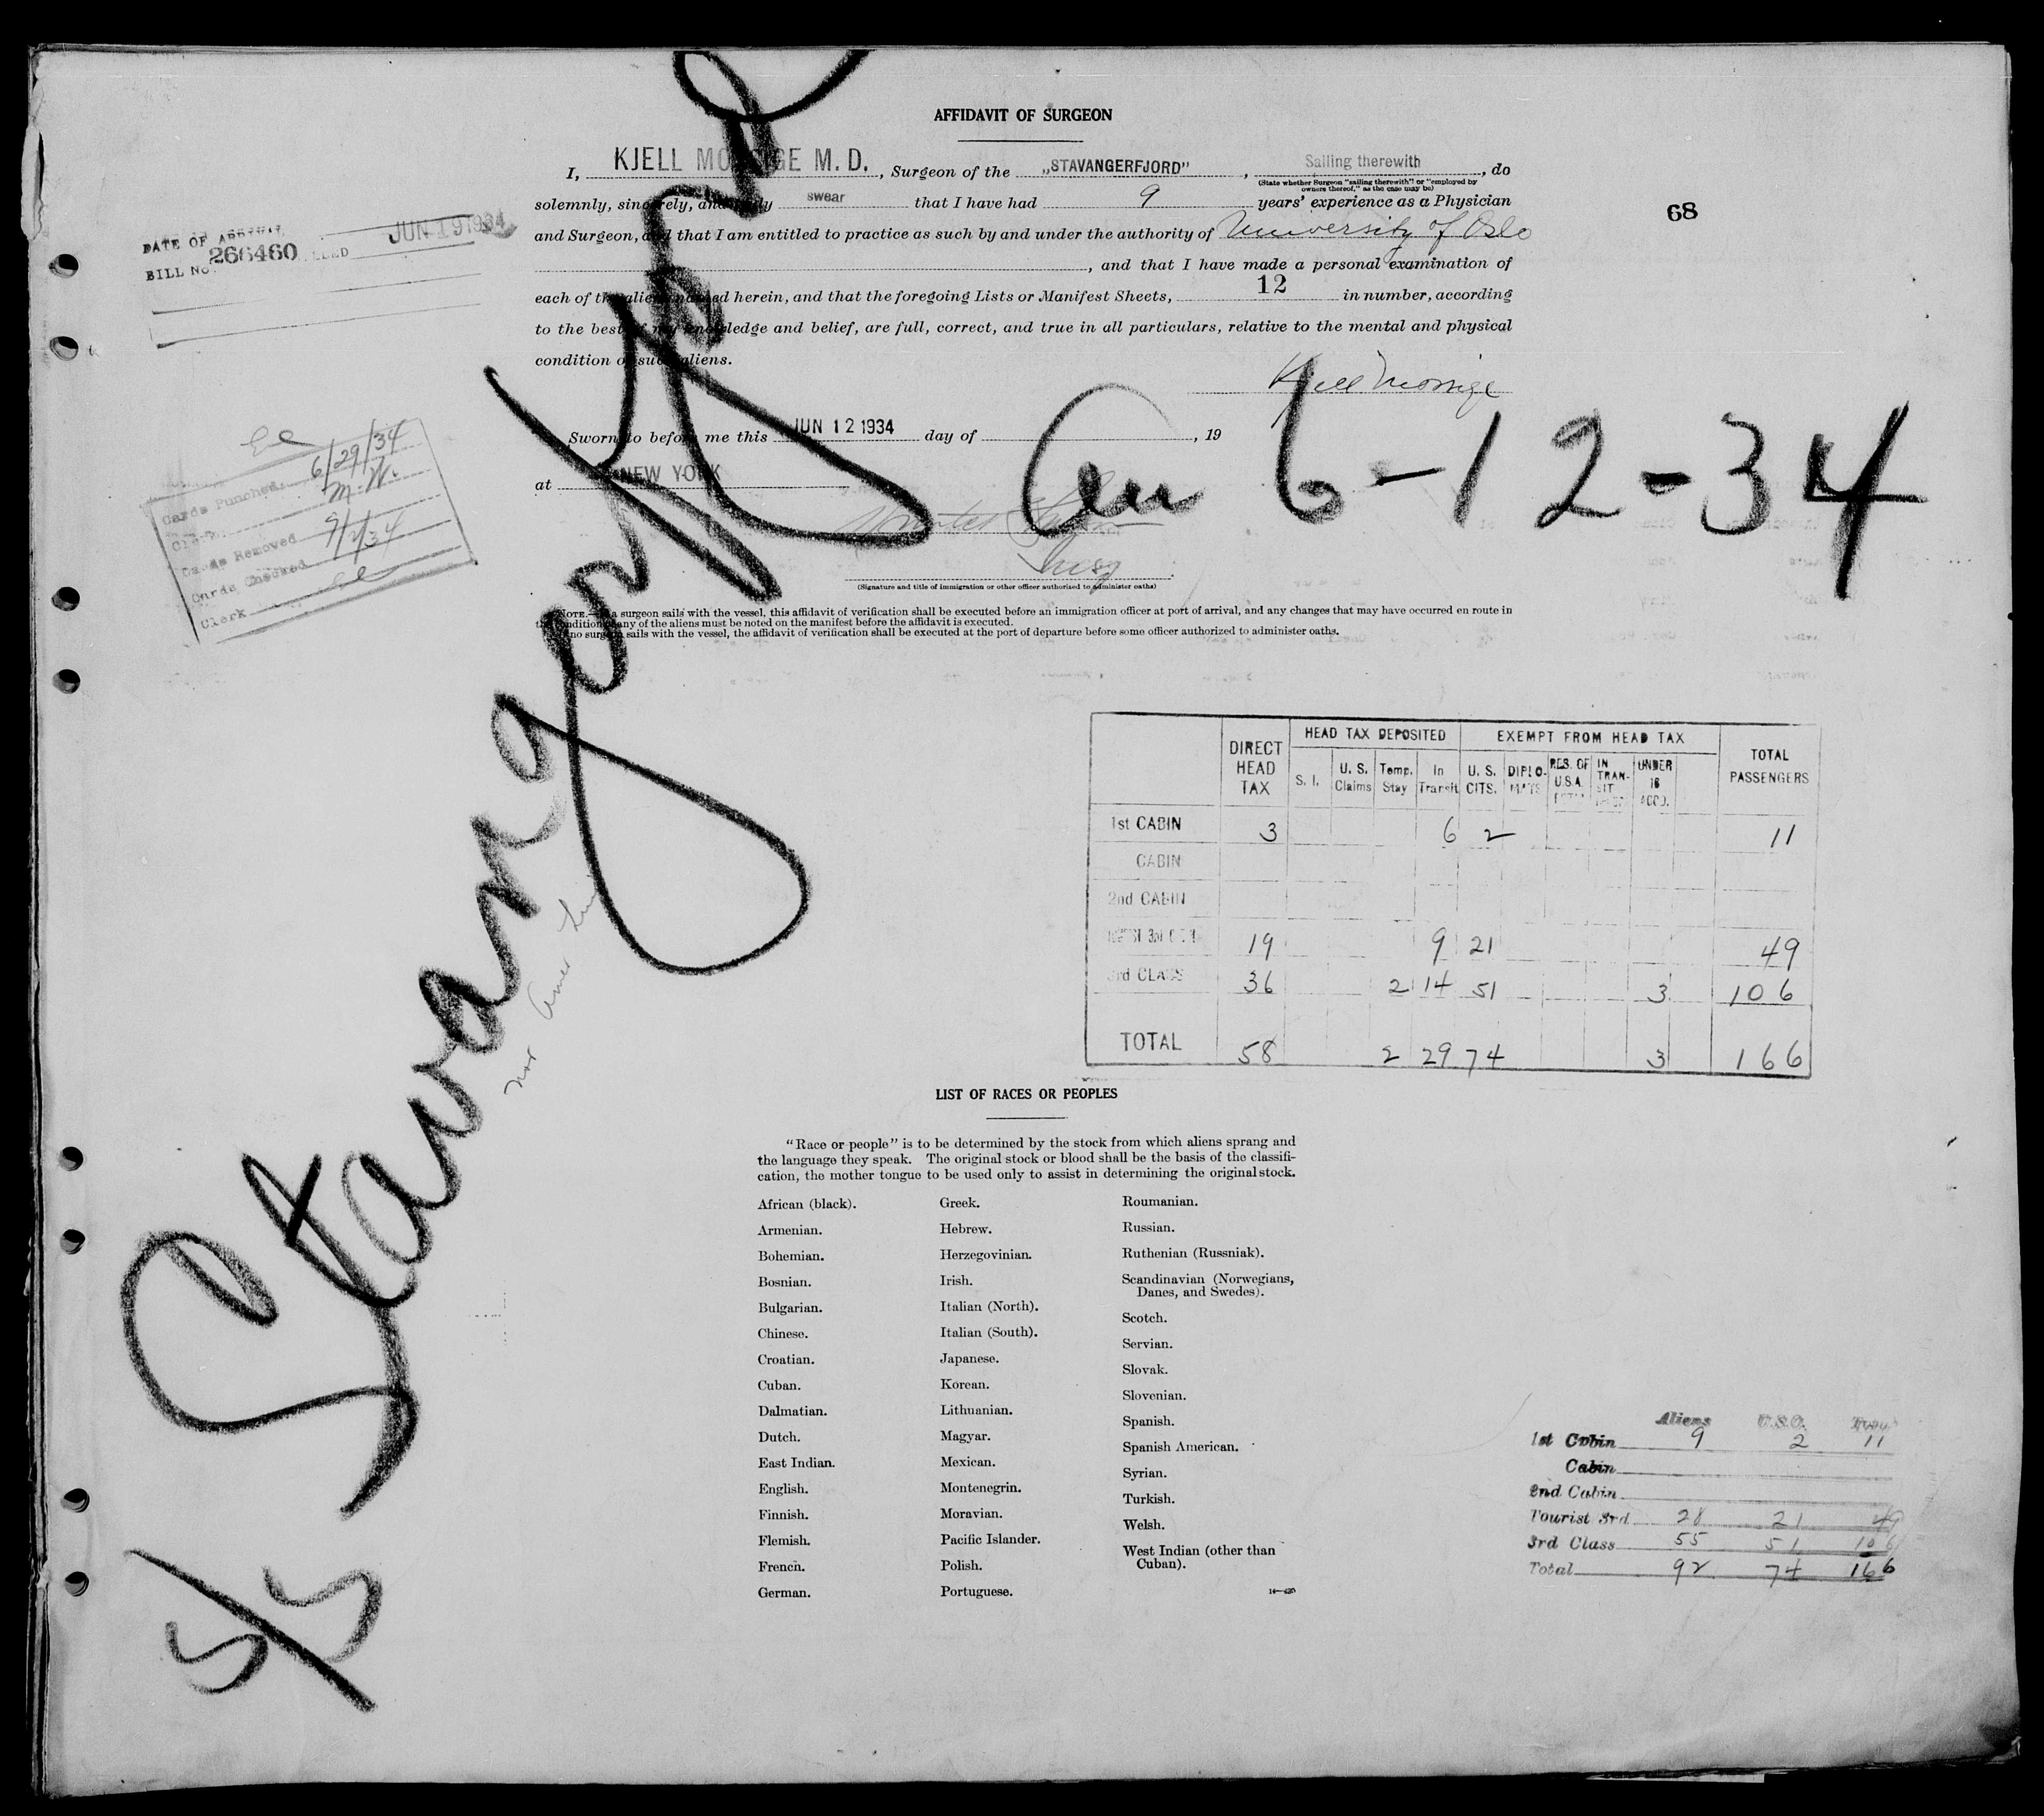 AFFIDAVIT OF SURGEON
I, KJELL MO GE M. D., Surgeon of the „STAVANGERFJORD”, Sailing therewith, do
(State whether Surgeon "sailing therewith" or "employed by
owners thereof," as the case may be)
solemnly, sincerely, and swear that I have had 9 years' experience as a Physician
and Surgeon, and that I am entitled to practice as such by and under the authority of University of Oslo
, and that I have made a personal examination of
each of the aliens named herein, and that the foregoing Lists or Manifest Sheets, 12 in number, according
to the best of my knowledge and belief, are full, correct, and true in all particulars, relative to the mental and physical
condition of such aliens.
Kjell
Sworn to before me this JUN 12 1934 day of , 19
at NEW YORK
(Signature and title of immigration or other officer authorized to administer oaths)
NOTE.—If a surgeon sails with the vessel, this affidavit of verification shall be executed before an immigration officer at port of arrival, and any changes that may have occurred en route in
the condition of any of the aliens must be noted on the manifest before the affidavit is executed.
If no surgeon sails with the vessel, the affidavit of verification shall be executed at the port of departure before some officer authorized to administer oaths.
68
DATE OF ARRIVAL JUN 19 1934
BILL No. 266460
Cards Punched 6/29/34
Clerk M. W.
Cards Removed 9/1/34
Cards Checked
Clerk
S/S Stavangerfjord
6-12-34
Nor Amer Line
DIRECT HEAD TAX HEAD TAX DEPOSITED EXEMPT FROM HEAD TAX TOTAL PASSENGERS
S. I. U. S. Claims Temp. Stay In Transit U. S. CITS. DIPLO-MATS RES. OF U.S.A. IN TRAN-SIT UNDER 16 ACCO.
1st CABIN 3 6 2 11
CABIN
2nd CABIN
19 9 21 49
3rd CLASS 36 2 14 51 3 106
TOTAL 58 2 29 74 3 166
LIST OF RACES OR PEOPLES
"Race or people" is to be determined by the stock from which aliens sprang and
the language they speak. The original stock or blood shall be the basis of the classifi-
cation, the mother tongue to be used only to assist in determining the original stock.
African (black).
Armenian.
Bohemian.
Bosnian.
Bulgarian.
Chinese.
Croatian.
Cuban.
Dalmatian.
Dutch.
East Indian.
English.
Finnish.
Flemish.
French.
German.
Greek.
Hebrew.
Herzegovinian.
Irish.
Italian (North).
Italian (South).
Japanese.
Korean.
Lithuanian.
Magyar.
Mexican.
Montenegrin.
Moravian.
Pacific Islander.
Polish.
Portuguese.
Roumanian.
Russian.
Ruthenian (Russniak).
Scandinavian (Norwegians,
Danes, and Swedes).
Scotch.
Servian.
Slovak.
Slovenian.
Spanish.
Spanish American.
Syrian.
Turkish.
Welsh.
West Indian (other than
Cuban).
Aliens U.S.C.
1st Cabin 9 2 11
Cabin
2nd Cabin
Tourist 3rd 28 21 49
3rd Class 55 51 106
Total 92 74 166